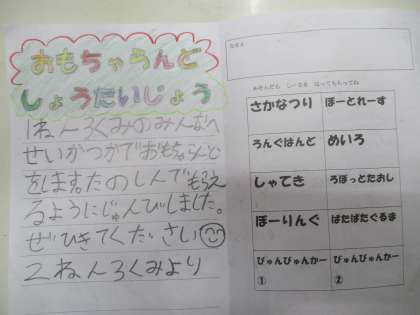 おもちゃらんど
しょうたいじょう
1ねん6くみのみんなへ
せいかつかでおもちゃらんど
をします。たのしんでもらえ
るようにじゅんびしました。
ぜひきてくださいね
2ねん6くみより
なまえ
あそんだら しーるを はってもらってね
さかなつり
ぼーとれーす
ろんぐはんど
めいろ
しゃてき
ろぼっとたおし
ぼーりんぐ
ぱたぱたぐるま
びゅんびゅんかー
①
びゅんびゅんかー
②